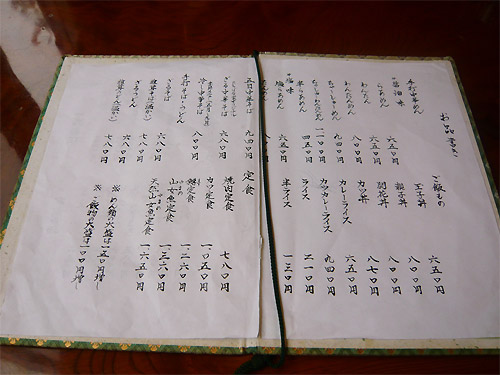 お品書き
手打中華めん
醤油味
らあめん 六五〇円
わんたん 六五〇円
わんたんめん 八〇〇円
ちゃーしゅーめん 九四〇円
ちゃーしゅーわんたんめん 一一〇〇円
半らあめん 四五〇円
塩味
塩らあめん 六五〇円
五目中華そば 九四〇円
ざる中華そば 六八〇円
冷し中華そば 八〇〇円
手打そば・うどん
ざるそば 六八〇円
種萱そば(温かい) 七八〇円
ざるうどん 六八〇円
種萱うどん(温かい) 七八〇円
ご飯もの
玉子丼 六五〇円
親子丼 八〇〇円
開花丼 八〇〇円
カツ丼 八七〇円
カレーライス 六五〇円
カツカレーライス 九四〇円
ライス 二一〇円
半ライス 一三〇円
定食
焼肉定食 七八〇円
カツ定食 一〇五〇円
定食 一二六〇円
山女魚定食 一三六〇円
天然山女魚定食 一六五〇円
※めん類の大盛は一五〇円増し
※ご飯物の大盛は一〇〇円増し